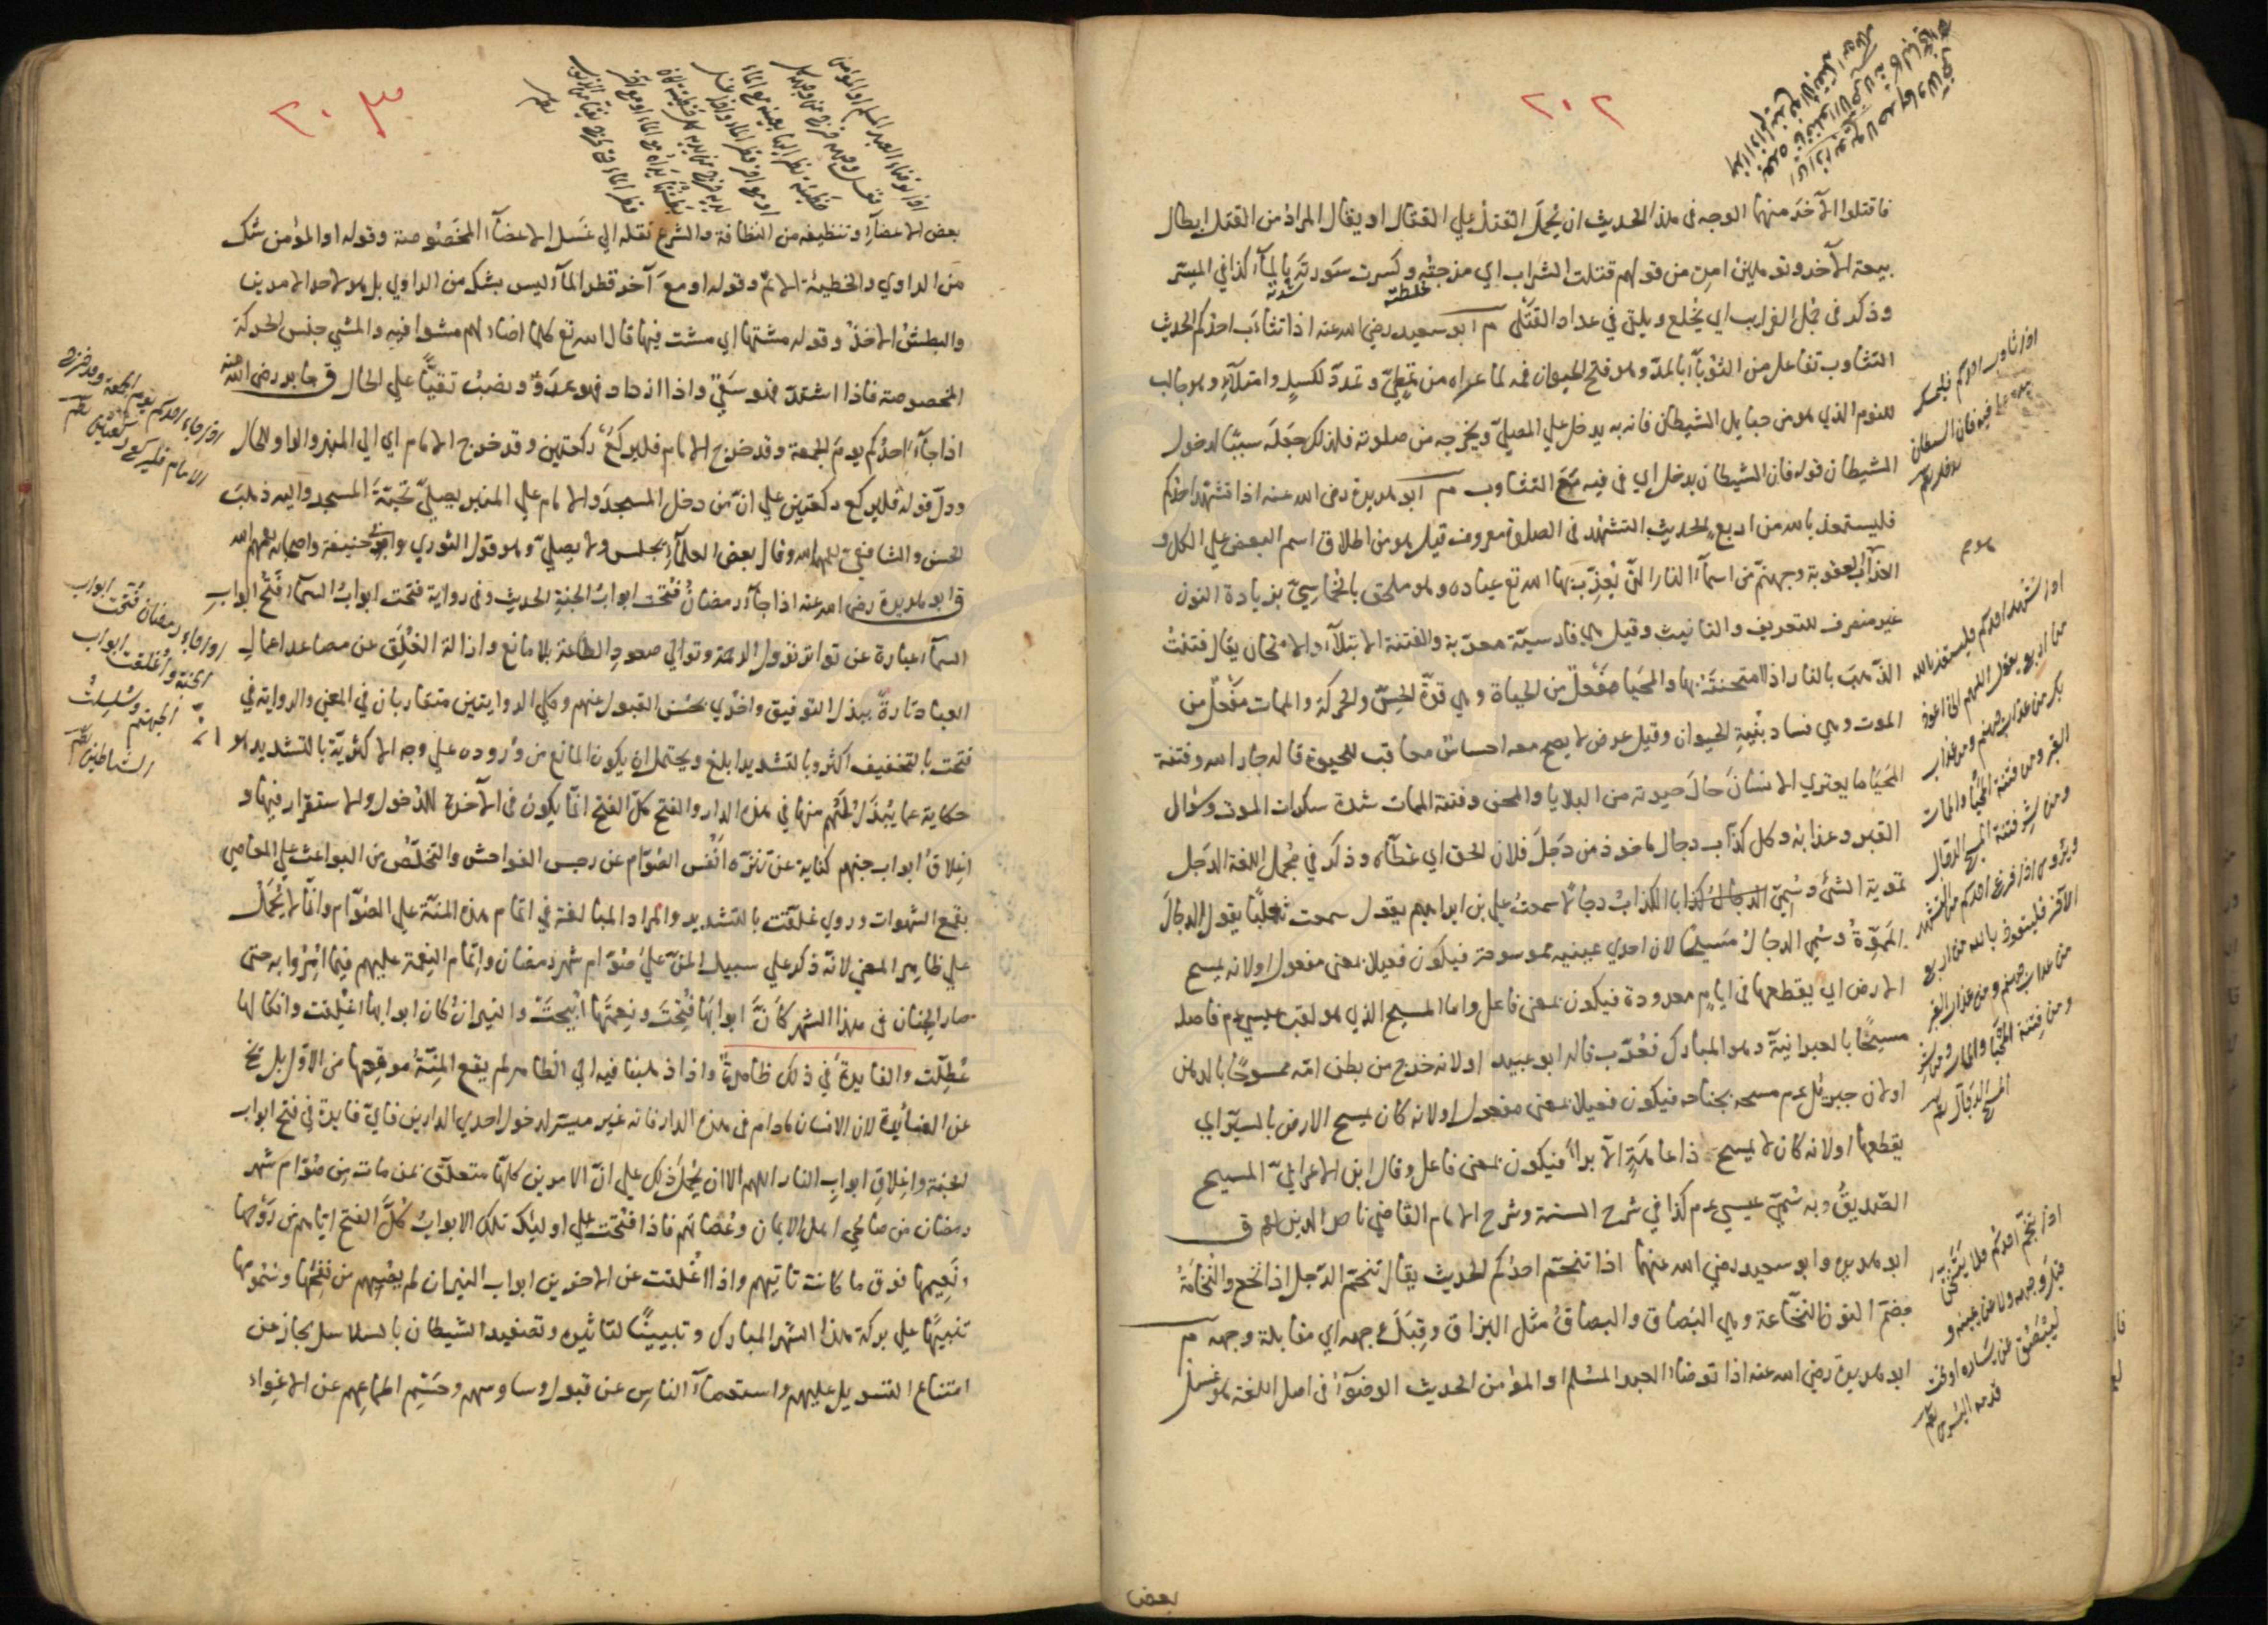 ٢٠٢
فاقتلوا الآخر منهما الوجه في هذا الحديث ان يُحمل القتل علي القتال او يقال المراد من القتل ابطال
بيعة الآخر وتوهين امره من قولهم قتلت الشراب اي مزجته وكسرت سورته بالمآء كذا في الميسّر
وذكر في مجمل الغرايب اي يُخلع ويلقي في عداد القتلى م ابو سعيد رضي الله عنه اذا تثاءب احدكم الحديث
التثاوب تفاعل من الثوباء بالمدّ وهو فتح الحيوان فمه لما عراه من تمطّي وتمدّد لكسل وامتلآء وهو جالب
للنوم الذي هو من حبايل الشيطان فانه به يدخل علي المصلّي ويخرجه من صلوته فلذلك جعله سببًا لدخول
الشيطان قوله فان الشيطان يدخل اي في فيه مع التثاوب م ابو هريرة رضي الله عنه اذا تشهد احدكم
فليستعذ بالله من اربع الحديث التشهد في الصلوة معروف قيل هو من اطلاق اسم البعض علي الكل و
العذاب العقوبة وجهنّم من اسمآء النار التي يُعذّب بها الله تع عباده وهو ملحق بالخماسيّ بزيادة النون
غير منصرف للتعريف والتانيث وقيل هي فارسيّة معرّبة والفتنة الابتلآء والامتحان يقال فتنتُ
الذّهب بالنار اذا امتحنته بها والمحيا مفعل من الحياة وهي قوّة الحسّ والحركة والممات مفعل من
الموت وهي فساد بنية الحيوان وقيل عرض لا يصح معه احساس معاقب للحيوة قاله جار الله وفتنة
المحيا ما يعتري الانسان حال حيوته من البلايا والمحن وفتنة الممات شدة سكرات الموت وسؤال
القبر وعذابه وكل كذّاب دجال ماخوذ من دجل فلان الحق اي غطّاه وذكر في مجمل اللغة الدجل
تموية الشئ وسُمّي الكذابُ دجالًا سمعتُ علي بن ابراهيم يقول سمعت ثعلبًا يقول الدجال
المموّهُ وسُمي الدجال مسيحًا لان احدي عينيه ممسوحة فيكون فعيلا بمعنى مفعول او لانه يمسح
الارض اي يقطعها في ايام معدودة فيكون بمعنى فاعل واما المسيح الذي هو لقب عيسي عم فاصله
مسيحًا بالعبرانيّة وهو المبارك فعُرّب قاله ابو عبيد او لانه خرج من بطن امّه ممسوحًا بالدهن
او لان جبريل عم مسحه بجناحه فيكون فعيلا بمعنى مفعول او لانه كان يمسح الارض بالسير اي
يقطعها او لانه كان لا يمسح ذا عاهةٍ الا برأ فيكون بمعنى فاعل وقال ابن الاعرابيّ المسيح
الصّديقُ وبه سُمّي عيسي عم كذا في شرح السنة وشرح الامام القاضي ناصر الدين ق
ابو هريرة وابو سعيد رضي الله عنهما اذا تنخم احدُكم الحديث يقال تنخم الرّجل اذا تنخع والنُخامةُ
بضمّ النون النخاعة وهي البُصاق والبصاقُ مثل البزاق وقِبَلَ وجهه اي مقابلة وجهه م
ابو هريرة رضي الله عنه اذا توضأ العبد المسلم او المؤمن الحديث الوضوءُ في اصل اللغة هو غسل
بعض
اذا تثاوب احدكم فليمسك
بيده علي فيه فان الشيطان
يدخل
اذا تشهد احدكم فليستعذ بالله
من اربع يقول اللهم اني اعوذ
بك من عذاب جهنم ومن عذاب
القبر ومن فتنة المحيا والممات
ومن شر فتنة المسيح الدجال
ويروي اذا فرغ احدكم من التشهد
الآخر فليتعوذ بالله من اربع
من عذاب جهنم ومن عذاب القبر
ومن فتنة المحيا والممات ومن شر
المسيح الدجال
اذا تنخم احدكم فلا يتنخمنّ
قبل وجهه ولا عن يمينه و
ليبصق عن يساره او تحت
قدمه اليسري
٢٠٣
اذا توضأ العبد المسلم او المؤمن
بعض الاعضآء وتنظيفه من النظافة والشرع نقله الي غسل الاعضآء المخصوصة وقوله او المؤمن شك
من الراوي والخطيئة الاثم وقوله او مع آخر قطر المآء ليس بشك من الراوي بل هو لاحد الامرين
والبطش الاخذ وقوله مشتها اي مشت فيها قال الله تع كلما اضاء لهم مشوا فيه والمشي جنس الحركة
المخصوصة فاذا اشتد فهو سعي واذا ازداد فهو عدوٌ ونصب نقيًّا علي الحال ق جابر رضي الله عنه
اذا جآء احدُكم يوم الجمعة وقد خرج الامام فليركع ركعتين وقد خرج الامام اي الي المنبر والواو للحال
ودلّ قوله فليركع ركعتين علي انّ من دخل المسجد والامام علي المنبر يصلّي تحيّة المسجد واليه ذهب
الحسن والشافعي رحمهما الله وقال بعض العلمآء يجلس ولا يصلّي وهو قول الثوري وابي حنيفة واصحابه رحمهم الله
ق ابو هريرة رضي الله عنه اذا جآء رمضان فُتحت ابوابُ الجنة الحديث وفي رواية فتحت ابوابُ السمآء فتح ابواب
السمآء عبارة عن تواتر نزول الرحمة وتوالي صعود الطاعة بلا مانع وازالة الغلق عن مصاعد اعمال
العباد تارةً ببذل التوفيق واخري بحسن القبول عنهم وكلي الروايتين متقاربان في المعني والرواية في
فتحت بالتخفيف اكثر وبالتشديد ابلغ ويحتمل ان يكون المانع من وروده علي وجه الاكثرية بالتشديد هو انّه
حكاية عما يُبذل لهم منها في هذه الدار والفتح كلّ الفتح انّما يكون في الآخرة للدخول والاستقرار فيها و
اغلاقُ ابواب جهنم كناية عن تنزّه انفس الصُوّام عن رجس الفواحش والتخلّص من البواعث علي المعاصي
بقمع الشهوات وروي غلّقت بالتشديد والمراد المبالغة في اتمام هذه المنّة علي الصُوّام وانّما لا يُحمل
علي ظاهر المعني لانّه ذكر علي سبيل المنّ علي صُوّام شهر رمضان واتمام النعمة عليهم فيما امروا به حتى
صار الجنان في هذا الشهر كأنّ ابوابها فتحت ونعيمها ابيحت والنيران كان ابوابها اغلقت وانكالها
عُطّلت والفايدة في ذلك ظاهرةٌ واذا ذهبنا فيه الي الظاهر لم يقع المنّة موقعها من الاول بل تخ
عن الفايدة لان الانسان مادام في هذه الدار فانه غير ميسّر لدخول احدي الدارين فايّ فايدة في فتح ابواب
الجنة واغلاق ابواب النار اللهم الا ان يُحمل ذلك علي انّ الامرين كلها متعلّق بمن مات من صُوّام شهر
رمضان من صالحي اهل الايمان وعُصاتهم فاذا فتحت علي اوليك تلك الابواب كلّ الفتح اتاهم من روحها
ونعيمها فوق ما كانت تاتيهم واذا اغلقت عن الآخرين ابواب النيران لم يصبهم من نفحها وسمومها
تنبيهًا علي بركة هذا الشهر المبارك وتبيينًا لتاثيره وتصفيد الشيطان بالسلاسل مجاز عن
امتناع التسويل عليهم واستعصآء الناس عن قبول وساوسهم وحسم اطماعهم عن الاغواء
اذا جاء احدكم يوم الجمعة وقد خرج
الامام فليركع ركعتين
اذا جاء رمضان فتحت ابواب
الجنة واغلقت ابواب
الجهنم وسلسلت
الشياطين